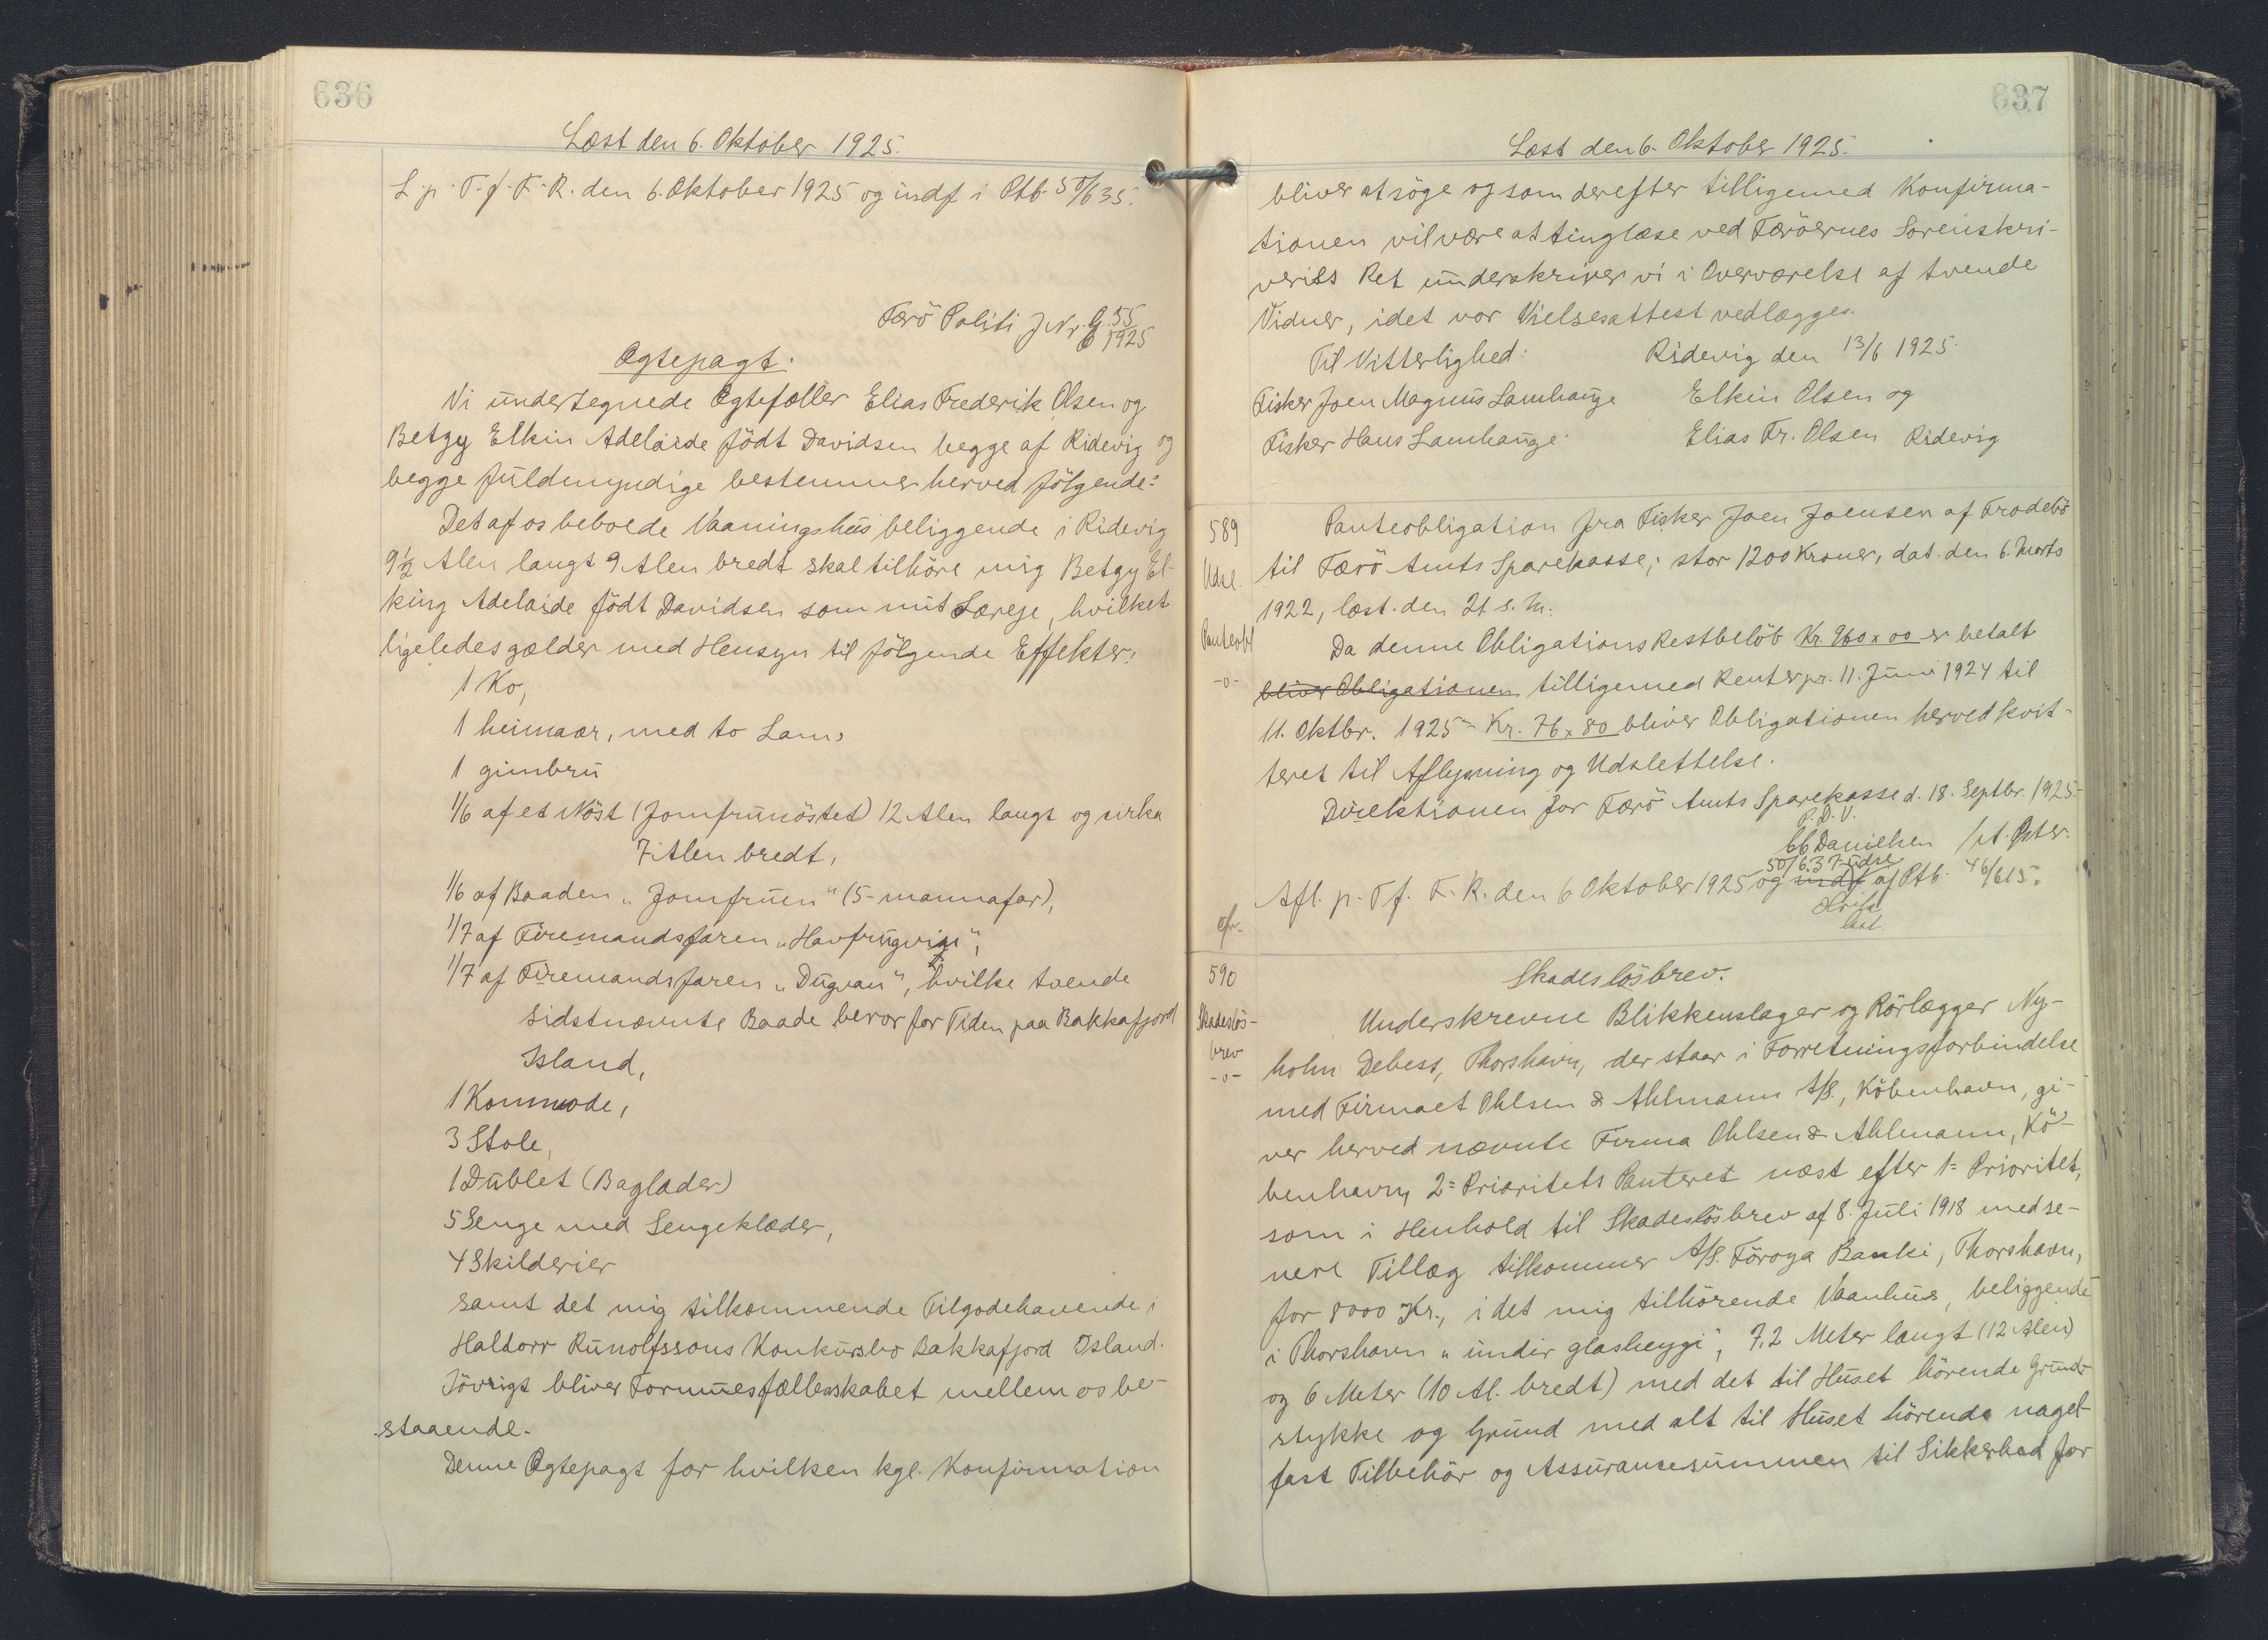 636
Læst den 6. Oktober 1925.
L. p. T. f. F. R. den 6. Oktober 1925 og indf i Ptb. 50/635.
Færö Politi J Nr. G. 55
6 1925
Ægtepagt.
Vi undertegnede Ægtefæller Elias Frederik Olsen og
Betzy Elkin Adelaide födt Davidsen begge af Ridevig og
begge fuldmyndige bestemmer herved fölgende:
Det af os beboede Vaaningshus beliggende i Ridevig
9½ Alen langt 9 Alen bredt skal tilhöre mig Betzy El-
king Adelaide födt Davidsen som mit Særeje, hvilket
ligeledes gælder med Hensyn til fölgende Effekter:
1 Ko,
1 heimaær, med to Lam,
1 gimbru
1/6 af et Nöst (Jomfrunöstet) 12 Alen langt og cirka
7 Alen bredt,
1/6 af Baaden „Jomfruen" (5-mannafar),
1/7 af Firemandsfaren „Havfrugvin",
1/7 af Firemandsfaren „Dugvan", hvilke tvende
sidstnævnte Baade beror for Tiden paa Bakkafjord
Island,
1 Kommode,
3 Stole,
1 Dublet (Baglader)
5 Senge med Sengeklæder,
4 Skilderier
samt det mig tilkommende Tilgodehavende i
Haldorr Runolfssons Konkursbo Bakkafjord Island.
Iövrigt bliver Formuesfællesskabet mellem os be-
staaende.
Denne Ægtepagt for hvilken kgl. Konfirmation
637
Læst den 6. Oktober 1925.
bliver at söge og som derefter tilligemed Konfirma-
tionen vil være at tinglæse ved Færöernes Sorenskri-
veries Ret underskriver vi i Overværelse af tvende
Vidner, idet vor Vielsesattest vedlægges.
Til Vitterlighed: Ridevig den 13/6 1925.
Fisker Joen Magnus Lamhauge Elkin Olsen og
Fisker Hans Lamhauge. Elias Fr. Olsen Ridevig
589
Udsl.
Panteobl
-o-
Panteobligation fra Fisker Joen Joensen af Frodebö
til Færö Amts Sparekasse, stor 1200 Kroner, dat. den 6. Marts
1922, læst. den 21. s. M.
Da denne Obligations Restbelöb Kr. 960 x 00 er betalt
bliver Obligationen tilligemed Renter pr. 11. Juni 1924 til
11. Oktbr. 1925 - Kr. 76 x 80 bliver Obligationen herved kvit-
teret til Aflysning og Udslettelse.
Direktionen for Færö Amts Sparekasse d. 18. Septbr. 1925.
P. D. V.
CC Danielsen /A. Öster.
50/637 udsl
Afl. p. T f. F. R. den 6 Oktober 1925 og indf af Ptb. 46/615.
590
Skadeslös-
brev
-o-
Skadeslösbrev.
Underskrevne Blikkenslager og Rörlægger Ny-
holm Debess, Thorshavn, der staar i Forretningsforbindelse
med Firmaet Ohlsen & Ahlmann A/S., Köbenhavn, gi-
ver herved nævnte Firma Ohlsen & Ahlmann, Kö-
benhavn, 2= Prioritets Panteret næst efter 1= Prioritet,
som i Henhold til Skadeslösbrev af 8. Juli 1918 med se-
nere Tillæg tilkommer A/S. Föroya Banki, Thorshavn,
for 8000 Kr., i det mig tilhörende Vaanhus, beliggende
i Thorshavn „undir glasheygi", 7,2 Meter langt (12 Alen)
og 6 Meter (10 Al. bredt) med det til Huset hörende Grund-
stykke og Grund med alt til Huset hörende nagel-
fast Tilbehör og Assurancesummen til Sikkerhed for